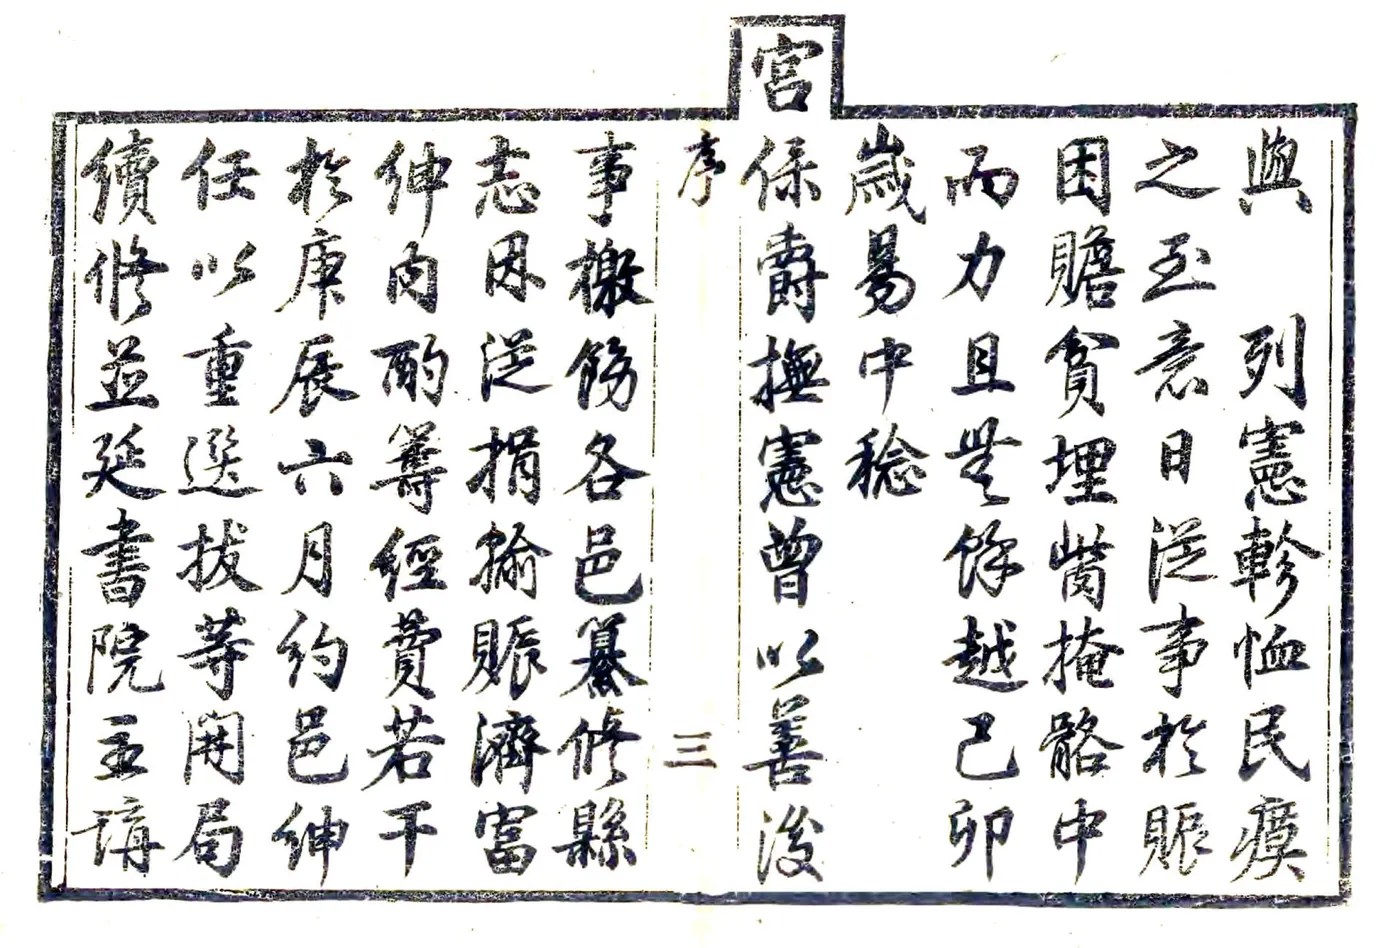 與　列憲軫恤民瘼
之至意日從事於賑
困贍貧埋胔掩骼中
而力且無餘越己卯
歲易中稔
宮保爵撫憲曾以善後
序　三
事檄飭各邑纂修縣
志因從捐輸賑濟富
紳內酌籌經費若干
於庚辰六月約邑紳
任以重選拔等開局
續修並延書院主講